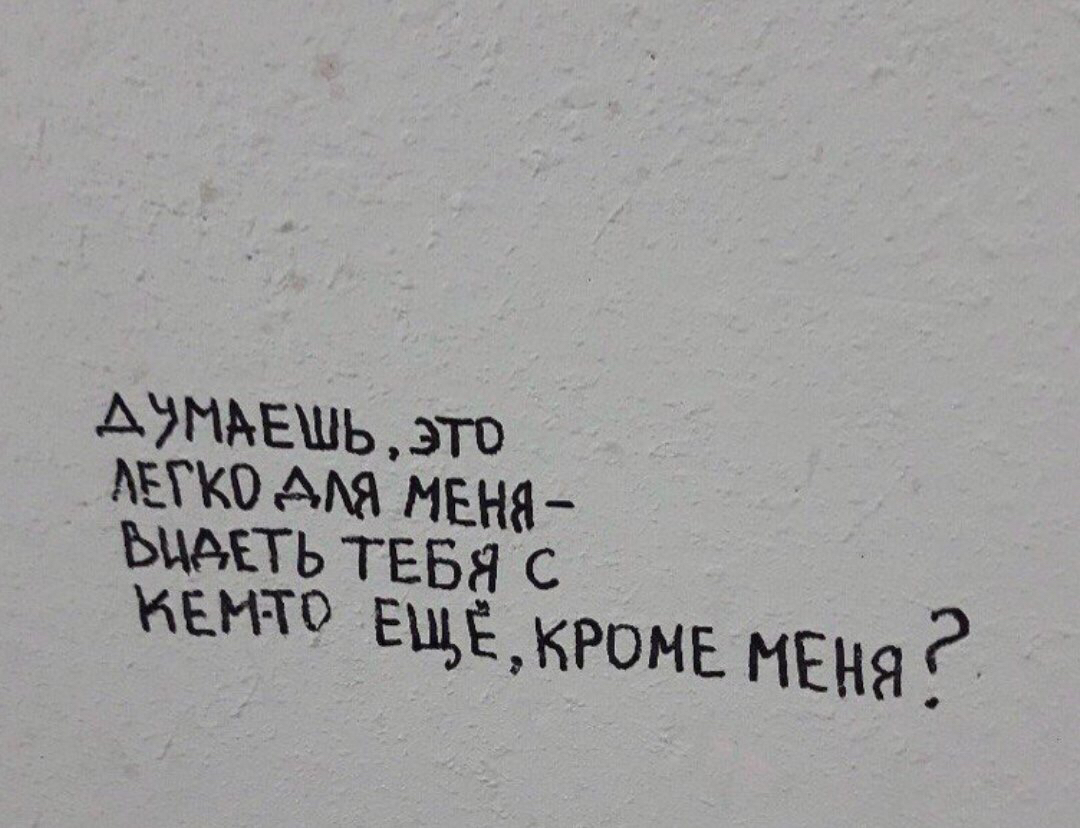 ДУМАЕШЬ, ЭТО
ЛЕГКО ДЛЯ МЕНЯ –
ВИДЕТЬ ТЕБЯ С
КЕМ-ТО ЕЩЁ, КРОМЕ МЕНЯ?